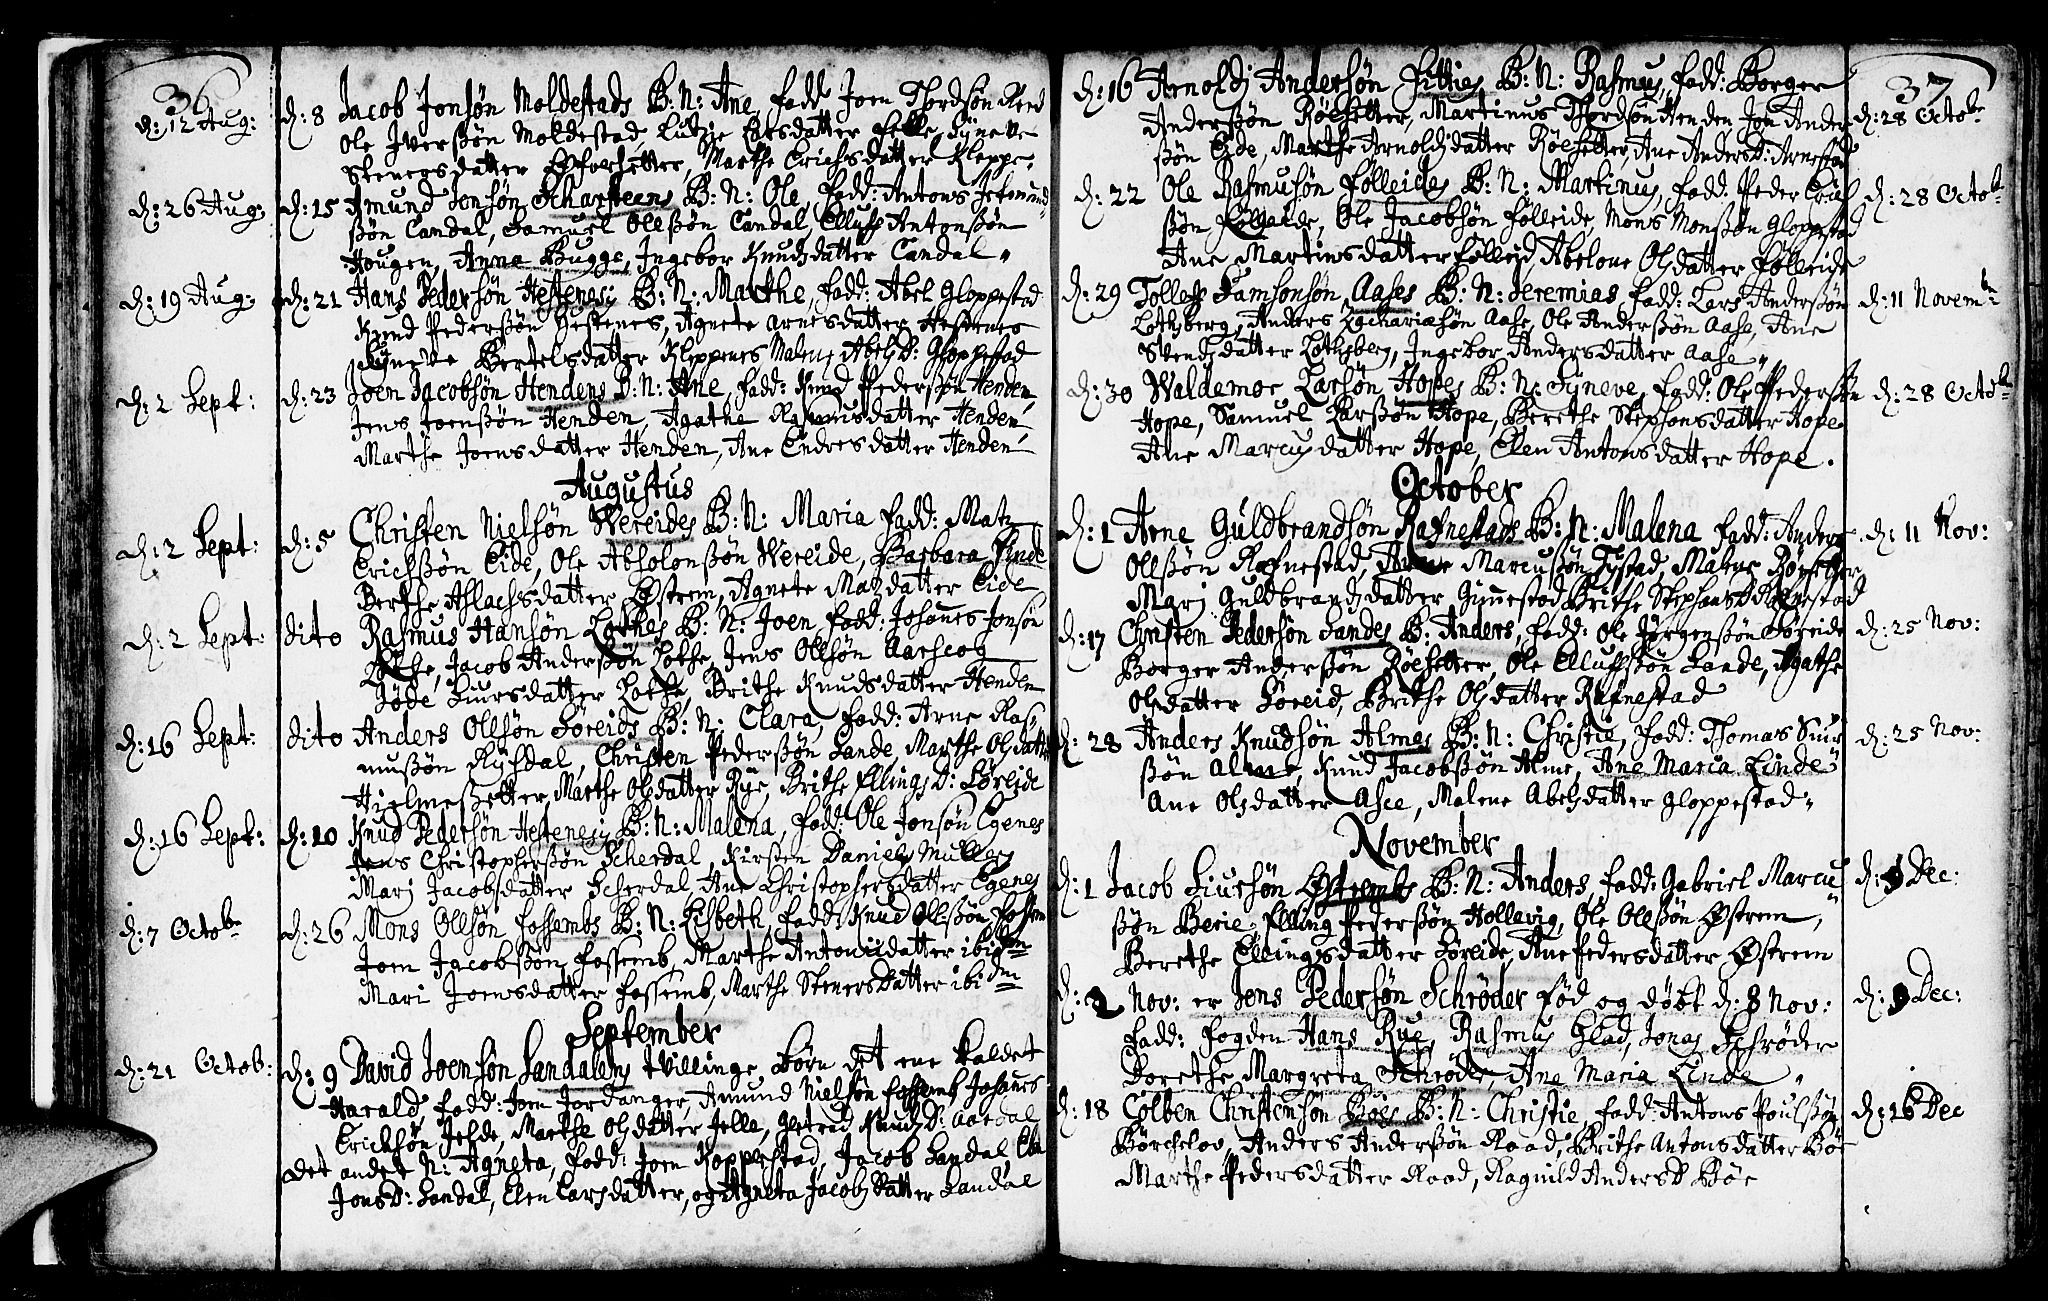 36
d: 12 Aug: d: 8 Jacob Jonsøn Moldestads B: N: Ane, fadd Joen Thordsøn
Ole Iversøn Moldestad, Lutzie datter Felle, Syneve
Stenersdatter, Marthe Erichsdatter Kleppe
d: 26 Aug: d: 15 Amund Jensøn Scharsteens B: N: Ole, fadd: Antons
søn Candal, Samuel Ollsøn Candal, Elluf Antonsøn
Hougen, Anna Bugge, Ingebor Knudsdatter Candal
d: 19 Aug: d: 21 Hans Pedersøn Hestenes B: N: Marthe, fadd: Abel Gloppestad
Knud Pedersøn Hestenes, Agnete Arnesdatter Hestenes
Synneve Bertelsdatter Kleppenes Malene Abels D: Gloppestad
d: 2 Sept: d: 23 Joen Jacobsøn Hendens B: N: Ane, fadd: Knud Pedersøn Henden
Jens Joensøn Henden, Agathe Rasmusdatter Henden
Marthe Joensdatter Henden, Ane Endresdatter Henden
Augustus
d: 2 Sept: d: 5 Christen Nielsøn Wereides B: N: Maria fadd: Matz
Erichsøn Eide, Ole Absolonsøn Wereide, Barbara Finde
Berthe Aslachsdatter Østrem, Agnete Matzdatter Eide
d: 2 Sept: dito Rasmus Hansøn Lothes B: N: Joen, fadd: Johannes Jonsøn
Lothe, Jacob Andersøn Lothe, Jens Ollsøn Aarscog
datter Lothe, Brithe Knudsdatter Henden
d: 16 Sept: dito Anders Ollsøn Søreids B: N: Clara, fadd: Arne Ras
musøn Rygsdal, Christen Pedersøn Sande, Marthe Olsdatter
Hielmesetter, Marthe Olsdatter Rye, Brithe Ellings D: Søreide
d: 16 Sept: d: 10 Knud Pedersøn Hestenes B: N: Malena, fadd: Ole Jonsøn Egenes
Jens Christophersøn Scherdal, Kirsten Daniels Mullers
Mari Jacobsdatter Scherdal, Ane Christophersdatter Egenes
d: 7 Octobr d: 26 Mons Ollsøn Fossembs B: N: Lisbeth, fadd: Knud Ollsøn Fossem
Joen Jacobsøn Fossemb, Marthe Antonidatter ibidm
Mari Joensdatter Fossemb, Marthe Stenersdatter ibidm
September
d: 21 Octob: d: 9 David Joensøn Sandalens tvillinge børn det ene kaldet
Harald, fadd: Joen Jordanger, Amund Nielsøn Fossemb, Johannes
Ericksøn, Marthe Olsdatter, Gertrud Knuds D: Aardal
Det andet N: Agneta, fadd: Joen Koppestad, Jacob Sandal
Jons D: Sandal, Elen Larsdatter, og Agneta Jacobsdatter Sandal
37
d: 16 Arnold Andersøn Fitties B: N: Rasmus, fadd: Borger d: 28 Octobr
Andersøn Røesetter, Martinus Thordsøn Henden Jon Ander
søn Eide, Marthe Arnoldsdatter Røesetter, Ane Anders D: Arnestad
d: 22 Ole Rasmusøn Følleides B: N: Martinus, fadd: Peder Erich d: 28 Octobr
søn Følleide, Ole Jacobsøn Følleide, Mons Monsøn Gloppestad
Ane Martinsdatter Følleid, Abelone Olsdatter Følleide
d: 29 Tollef Samsonsøn Aases B: N: Jeremias, fadd: Lars Andersøn d: 11 Novembr
Lothsberg, Anders Zachariæsøn Aase, Ole Andersøn Aase, Ane
Svendsdatter Lothsberg, Ingebor Andersdatter Aase
d: 30 Waldemor Larsøn Hopes B: N: Syneve, fadd: Ole Pedersøn d: 28 Octobr
Hope, Samuel Larsøn Hope, Berethe Stephansdatter Hope
Ane Marcusdatter Hope, Elen Antonsdatter Hope.
October
d: 1 Arne Guldbrandsøn Rafnestads B: N: Malena fadd: Anders d: 11 Nov:
Ollsøn Rafnestad, Marcusøn Tystad, Malene Røesetter
Mari Guldbrandsdatter Gimmestad Brithe Stephans D Rafnestad
d: 17 Christen Pedersøn Sandes B: Anders, fadd: Ole Jørgensøn Søreide d: 25 Nov:
Borger Andersøn Røesetter, Ole Ellufsøn Sande, Agathe
Olsdatter Søreid, Brithe Olsdatter Rafnestad
d: 28 Anders Knudsøn Almes B: N: Christie, fadd: Thomas Siur d: 25 Nov:
søn Alme, Knud Jacobsøn Alme, Ane Maria Linde
Ane Olsdatter Asce, Malene Abelsdatter Gloppestad
November
d: 1 Jacob Siursøn Østrembs B: N: Anders, fadd: Gabriel Marcu d: 9 Dec:
søn Berie, Elling Pedersøn Hollevig, Ole Ollsøn Østrem,
Berethe Ellingsdatter Søreide, Ane Pedersdatter Østrem
d: 2 Nov: er Jens Pedersøn Schrøder fød og døbt d: 8 Nov: d: 9 Dec:
fadd: Fogden Hans Rue, Rasmus Glad, Jonas Schrøder
Dorethe Margreta Schrøder, Ane Maria Linde
d: 18 Colben Christensøn Bøes B: N: Christie, fadd: Antons Poulsøn d: 16 Dec
Børchelov, Anders Andersøn Raad, Brithe Antonsdatter Bøe
Marthe Pedersdatter Raad, Ragnild Anders D Bøe